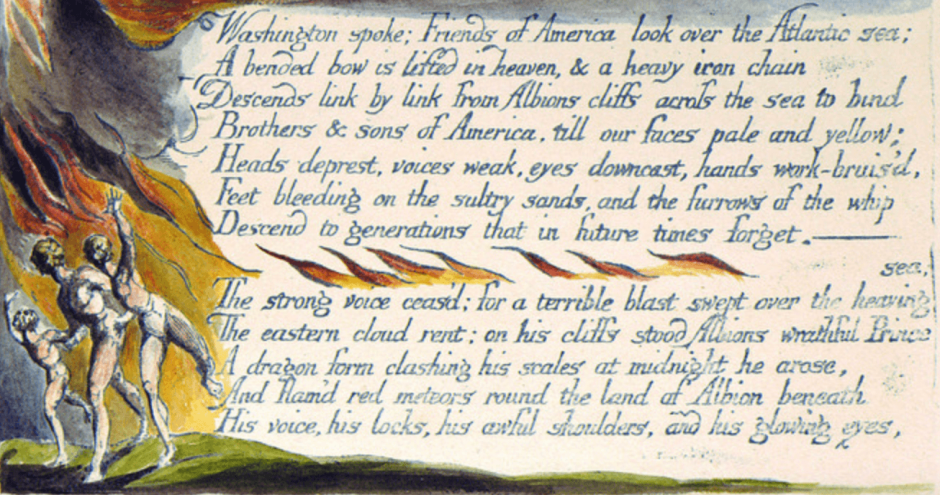 Washington spoke; Friends of America look over the Atlantic sea;
A bended bow is lifted in heaven, & a heavy iron chain
Descends link by link from Albions cliffs across the sea to bind
Brothers & sons of America, till our faces pale and yellow;
Heads deprest, voices weak, eyes downcast, hands work-bruis'd,
Feet bleeding on the sultry sands, and the furrows of the whip
Descend to generations that in future times forget.———
sea,
The strong voice ceas'd; for a terrible blast swept over the heaving
The eastern cloud rent; on his cliffs stood Albions wrathful Prince
A dragon form clashing his scales at midnight he arose,
And flam'd red meteors round the land of Albion beneath
His voice, his locks, his awful shoulders, and his glowing eyes,